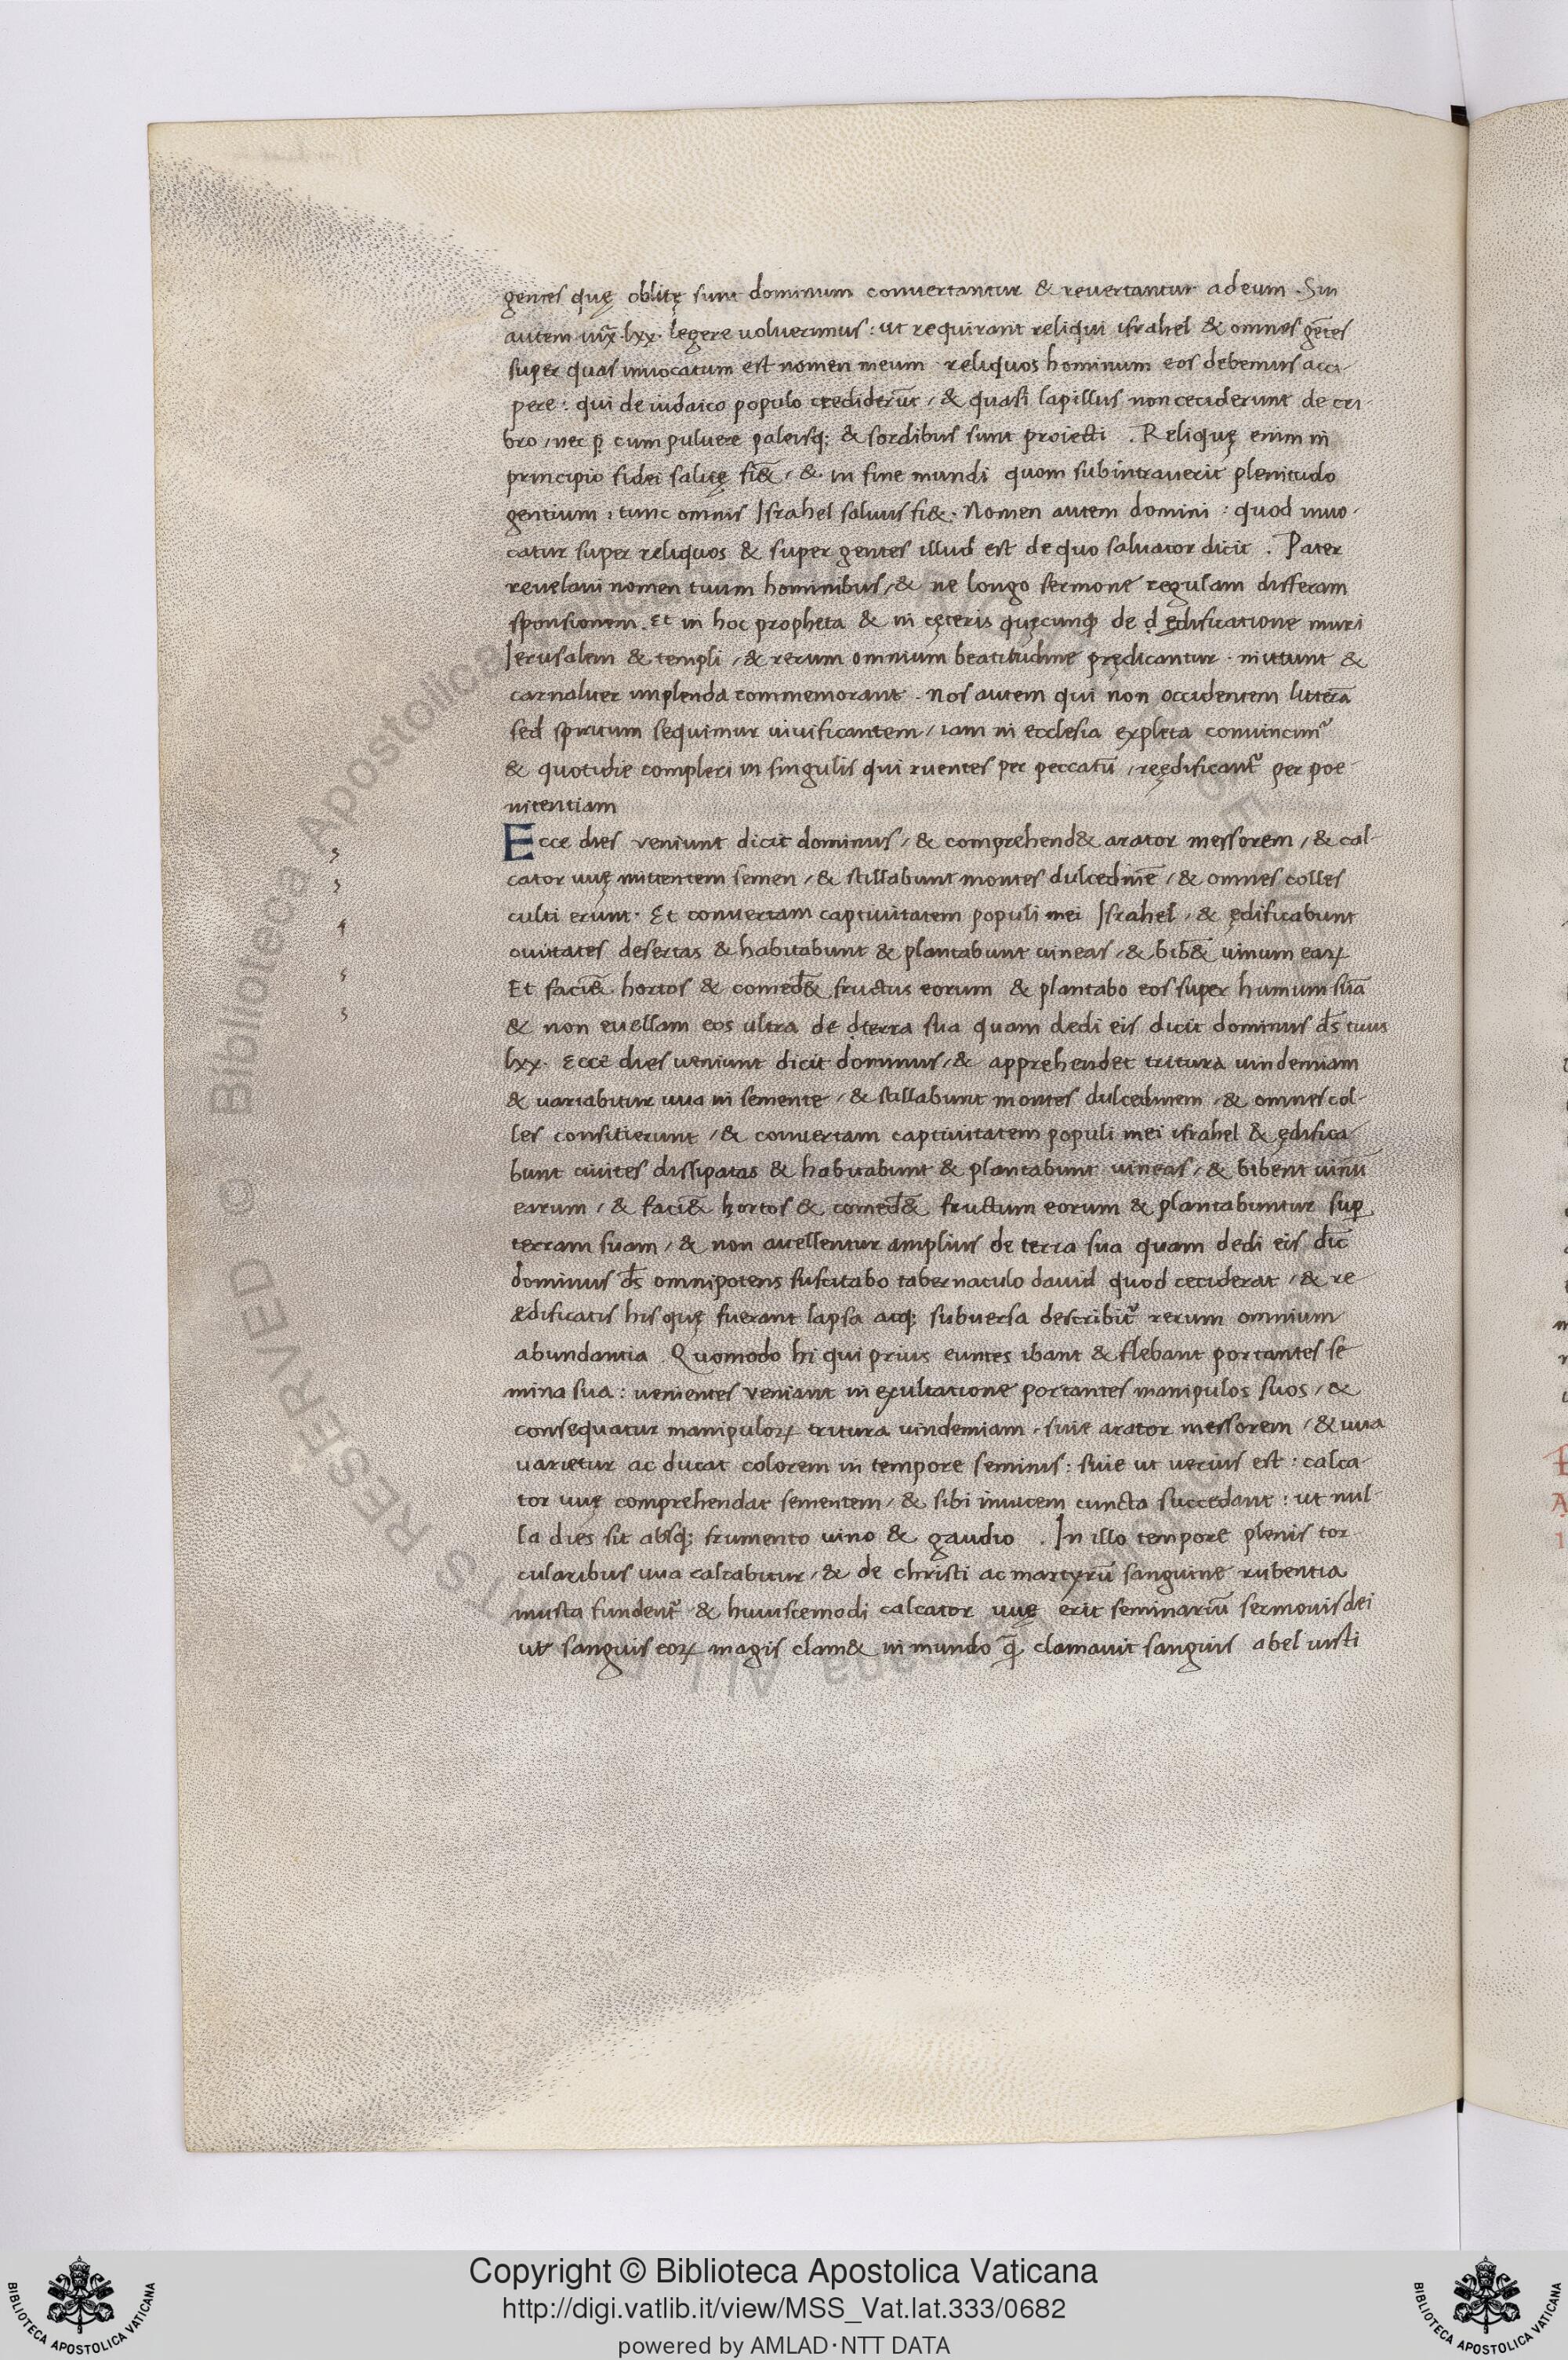 gentes quę oblitę sunt dominum conuertantur & reuertantur adeum. Sin
autem iux̄.lxx. legere uoluerimus: ut requirant reliqui israhel & omnes gētes
super quas inuocatum est nomen meum reliquos hominum eos debemus acci-
pere: qui de iudaico populo crediderūt, & quasi lapillus non ceciderunt de cri-
bro, nec cum puluere paleisq; & sordibus sunt proiecti. Reliquę enim in
principio fidei saluę fi&̄, & in fine mundi quom subintrauerit plenitudo
gentium, tunc omnis Israhel saluus fi&. Nomen autem domini: quod inuo-
catur super reliquos & super gentes illud est de quo saluator dicit. Pater
reuelaui nomen tuum hominibus, & ne longo sermone regulam differam
sponsionem. Et in hoc propheta & in cęteris quęcunq de ḍ ędificatione muri
Ierusalem & templi, & rerum omnium beatitudine prędicantur nutunt &
carnaliter implenda commemorant. Nos autem qui non occidentem litterā
sed spiritum sequimur uiuificantem, iam in ecclesia expleta conuincimr̃
& quotidie compleri in singulis qui ruentes per peccatū, reędificantr̃ per poe-
nitentiam
Ecce dies veniunt dicit dominus, & comprehend& arator messorem, & cal-
cator uuę mittentem semen, & stillabunt montes dulcedinē, & omnes colles
culti erunt. Et conuertam captiuitatem populi mei Israhel, & ędificabunt
ciuitates desertas & habitabunt & plantabunt uineas, & bib&̄ uinum eaꝝ
Et faci&̄ hortos & comed&̄ fructus eorum & plantabo eos super humum suā
& non euellam eos ultra de ḍterra sua quam dedi eis dicit dominus d̄s tuus
lxx. Ecce dies ueniunt dicit dominus, & apprehendet tritura uindemiam
& uariabitur uua in semente, & stillabunt montes dulcedinem, & omnes col-
les consitierunt, & conuertam captiuitatem populi mei israhel & ędifica-
bunt ciuites dissipatas & habitabunt & plantabunt uineas, & bibent uinū
earum, & faci&̄ hortos & comed&̄ fructum eorum & plantabuntur sup̱
terram suam, & non auellentur amplius de terra sua quam dedi eis dīc
dominus d̄s omnipotens suscitabo tabernaculo dauid quod ceciderat, & re
&dificatis his quę fuerant lapsa atq; subuersa describitr̃ rerum omnium
abundantia. Quomodo hi qui prius euntes ibant & flebant portantes se
mina sua: uenientes veniant in exultatione portantes manipulos suos, &
consequatur manipuloꝝ tritura uindemiam, siue arator messorem, & uua
uarietur ac ducat colorem in tempore seminis: siue ut uerius est: calca-
tor uuę comprehendat sementem, & sibi inuicem cuncta succedant: ut nul-
la dies sit absq; frumento uino & gaudio. In illo tempore plenis tor
cularibus uua calcabitur, & de christi ac martyrū sanguine rubentia
musta fundentr̃ & huiuscemodi calcator uuę erit seminariū sermonis dei
ut sanguis eoꝝ magis clam& in mundo q̄ clamauit sanguis abel iusti
Copyright © Biblioteca Apostolica Vaticana
http://digi.vatlib.it/view/MSS_Vat.lat.333/0682
powered by AMLAD·NTT DATA
BIBLIOTECA APOSTOLICA VATICANA
BIBLIOTECA APOSTOLICA VATICANA